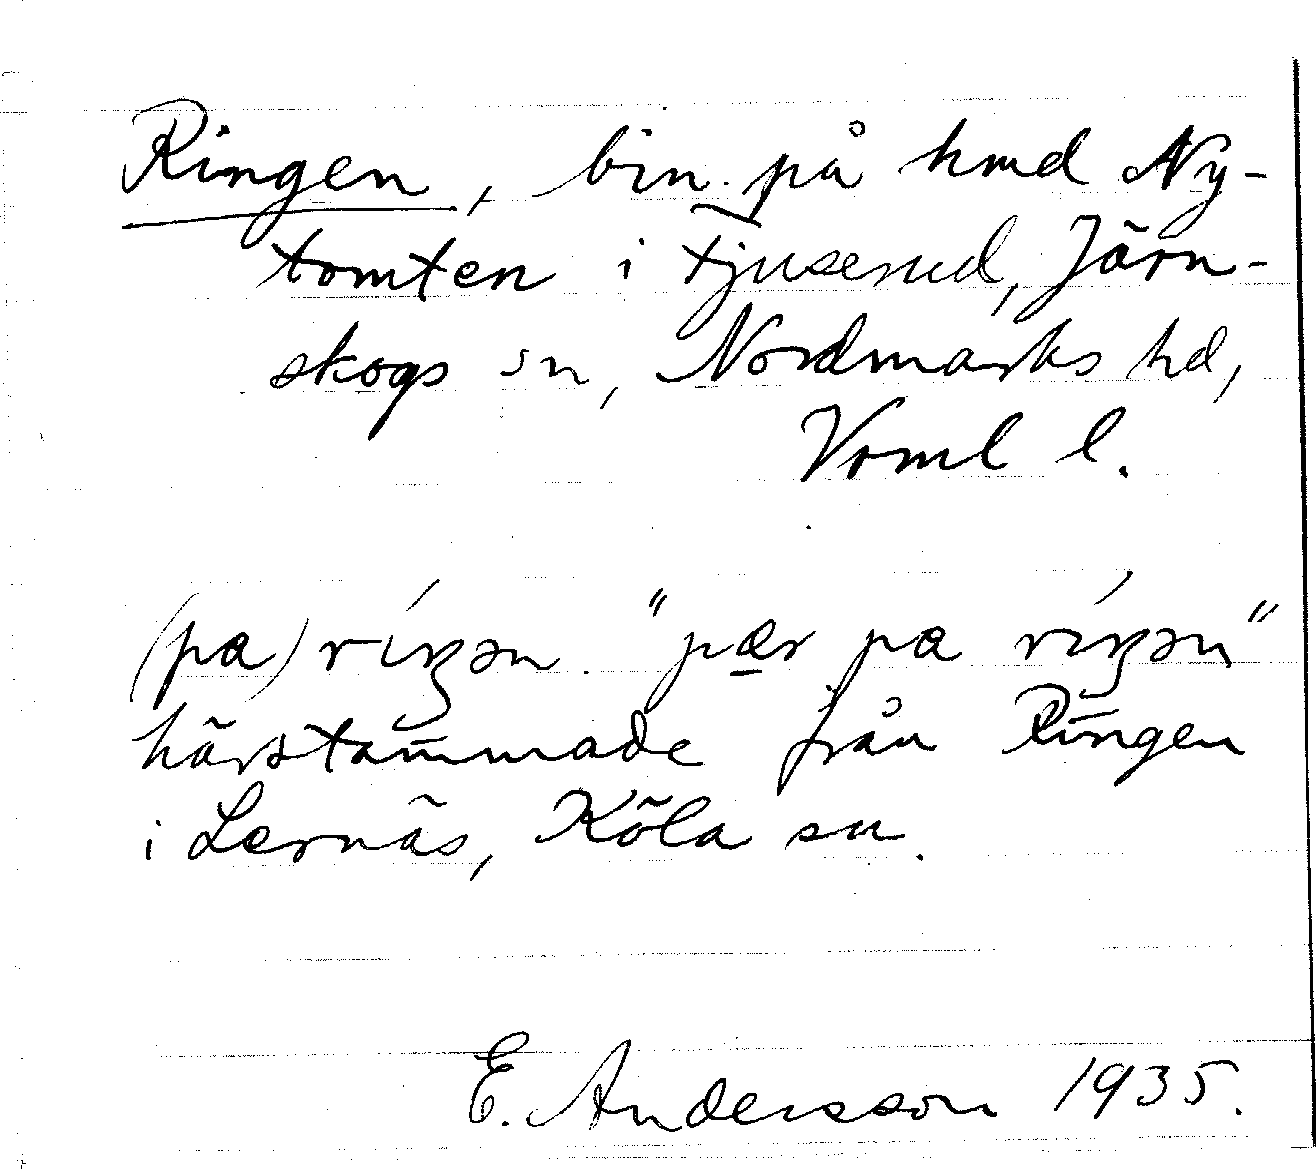 Ringen, bin. på hmd Ny-
tomten i Tjuserud, Järn-
skogs sn, Nordmarks hd,
Vrml l.
(pa) ríŋən. "pær pa ríŋən"
härstammade från Ringen
i Lernäs, Köla sn.
E. Andersson 1935.